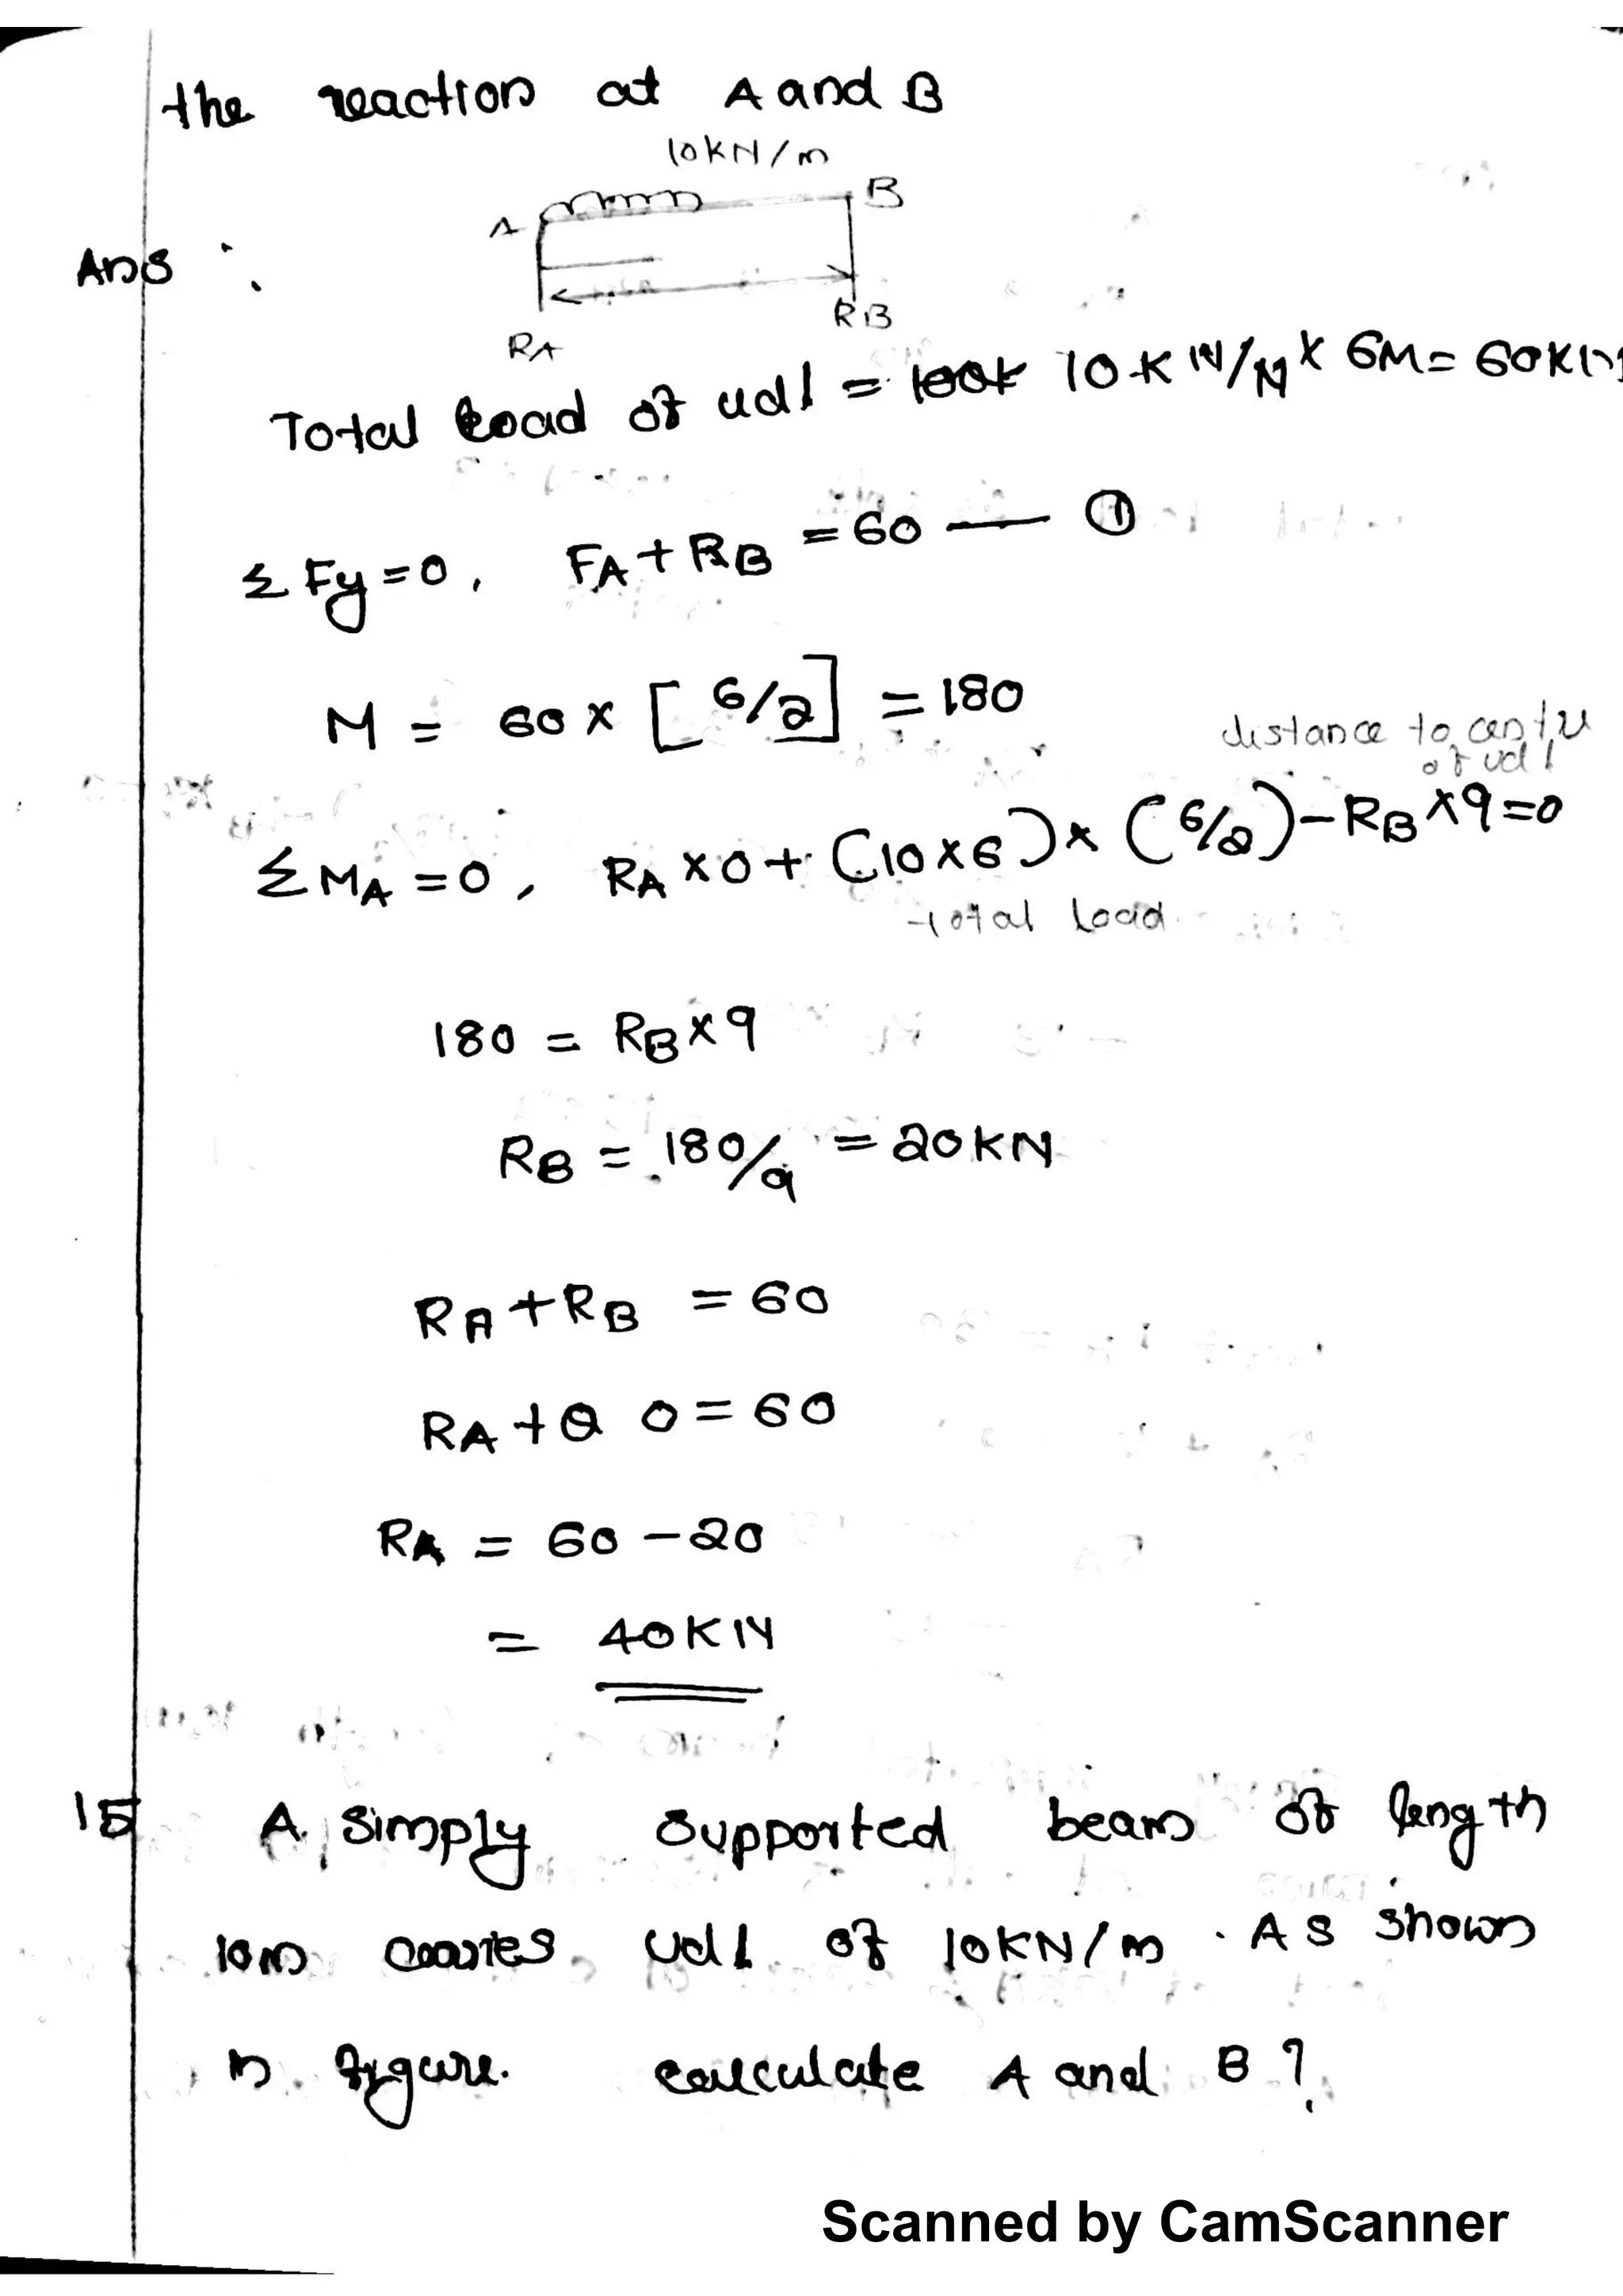 the reaction at A and B
10KN/m
A
B
Ans :
RA
RB
Total load of udl = 10 KN/M x 6M = 60KN
Σ Fy = 0, FA + RB = 60 — ①
M = 60 x [6/2] = 180
distance to centre
of udl
Σ MA = 0, RA x 0 + (10 x 6) x (6/2) - RB x 9 = 0
total load
180 = RB x 9
RB = 180/9 = 20KN
RA + RB = 60
RA + 2 0 = 60
RA = 60 - 20
= 40KN
15 A simply supported beam of length
10m carries udl of 10KN/m. AS shown
in figure. calculate A and B?
Scanned by CamScanner